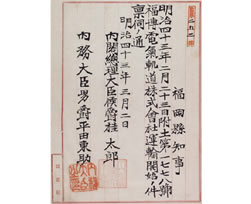 福岡縣知事
明治四十三年二月二十三日附土第一七七八號
福博電氣軌道株式會社運輸開始ノ件
稟伺ノ通
明治四十三年三月二日
内閣總理大臣侯爵桂太郎
内務大臣男爵平田東助